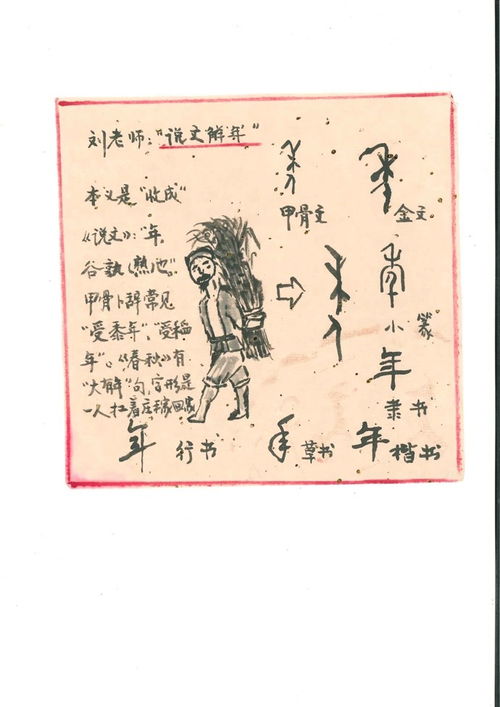 刘老师："说文解年"
本义是"收成"
《说文》："年，
谷孰(熟)也"。
甲骨卜辞常见
"受黍年"、"受稻
年"。《春秋》有
"大解"句，字形是
一人扛着庄稼回家
甲骨文
金文
小篆
年
隶书
年
行书
年
草书
年
楷书